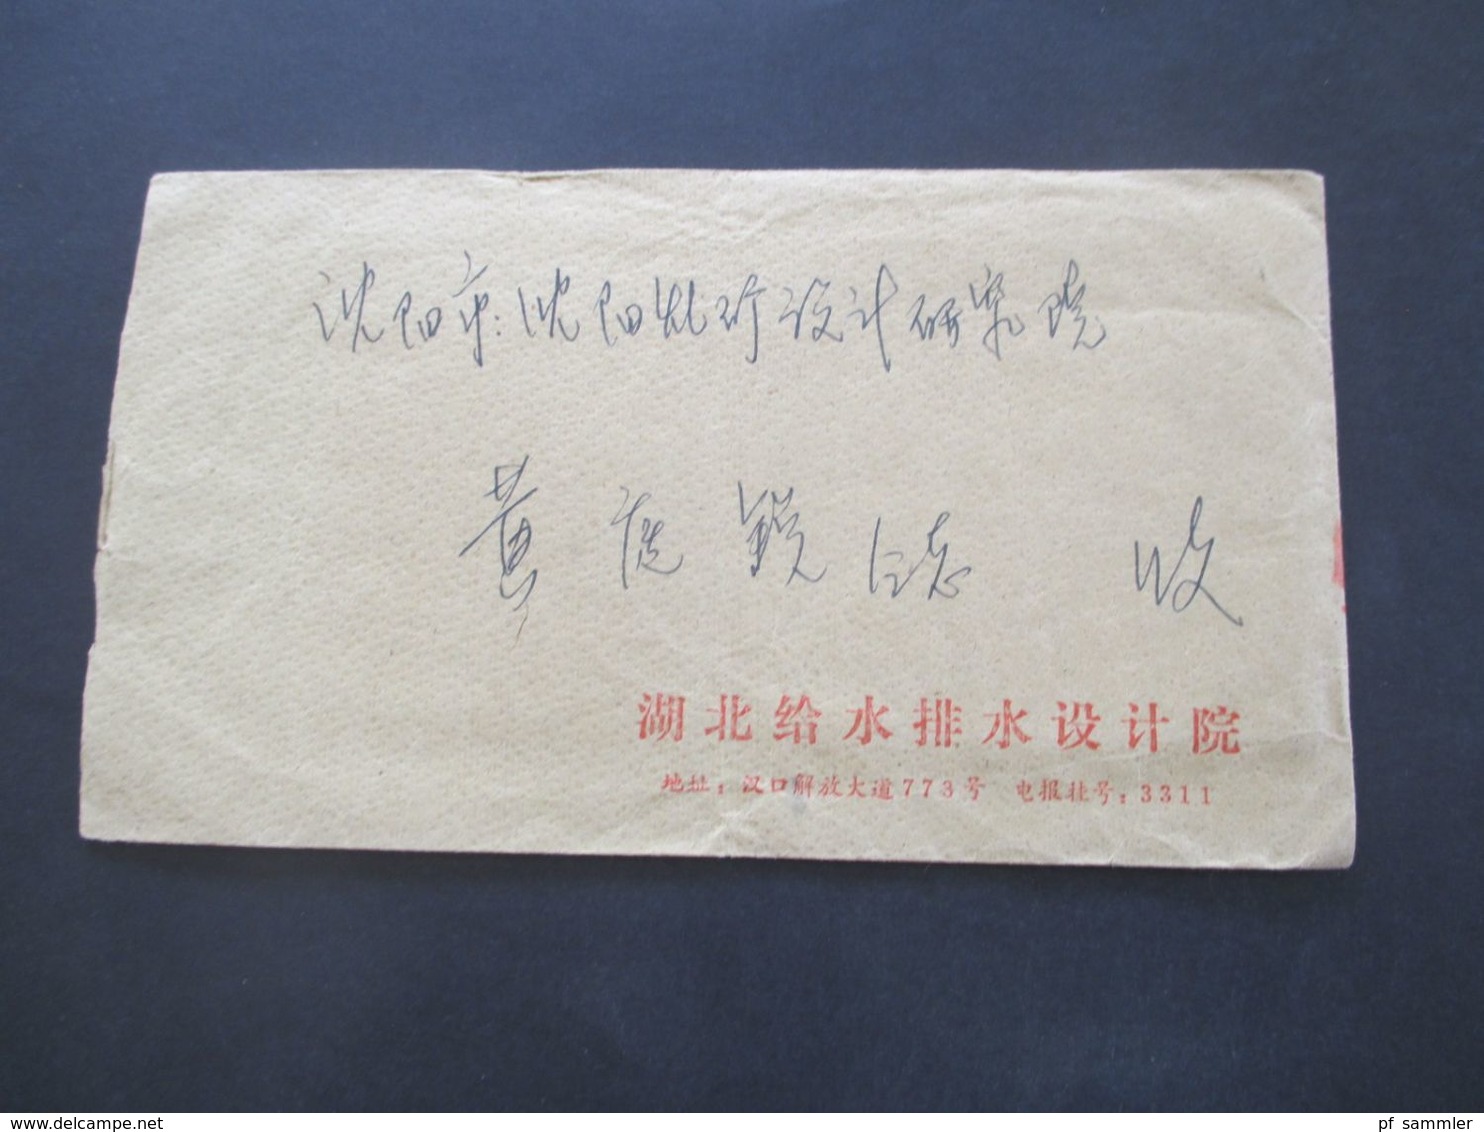 沈阳市:沈阳化矿设计研究院
黄 锐同志 收
湖北给水排水设计院
地址:汉口解放大道773号 电报挂号:3311
www.delcampe.net
pf_sammler